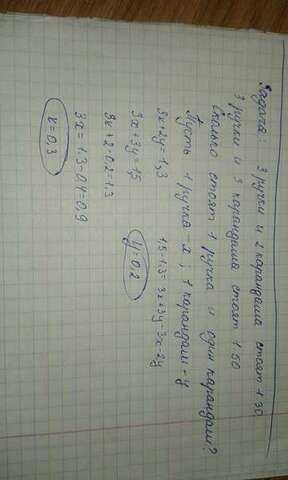 Задача: 3 ручки и 2 карандаша стоят 1.30
3 ручки и 3 карандаша стоят 1.50
Сколько стоят 1 ручка и один карандаш?
Пусть 1 ручка - x ; 1 карандаш - y
3x+2y=1.3 1.5-1.3=3x+3y-3x-2y
3x+3y=1,5 y=0.2
3x+2·0.2=1.3
3x=1.3-0.4=0,9
x=0,3